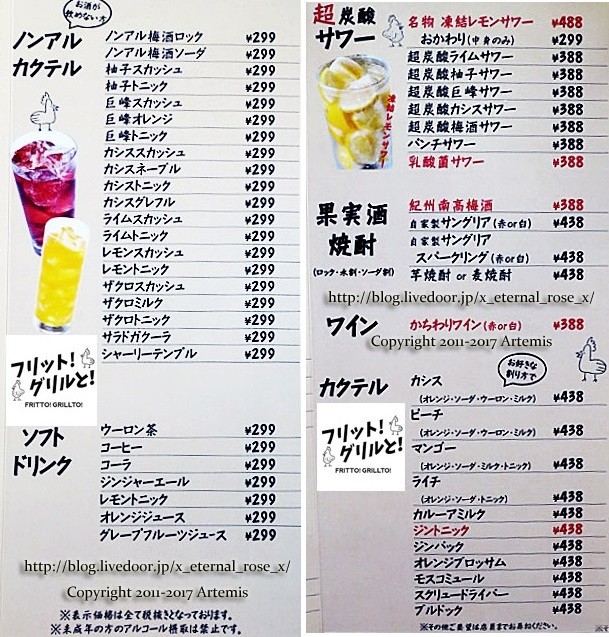 お酒が
飲めない方
ノンアル
カクテル
ノンアル梅酒ロック ¥299
ノンアル梅酒ソーダ ¥299
柚子スカッシュ ¥299
柚子トニック ¥299
巨峰スカッシュ ¥299
巨峰オレンジ ¥299
巨峰トニック ¥299
カシススカッシュ ¥299
カシスネーブル ¥299
カシストニック ¥299
カシスグレフル ¥299
ライムスカッシュ ¥299
ライムトニック ¥299
レモンスカッシュ ¥299
レモントニック ¥299
ザクロスカッシュ ¥299
ザクロミルク ¥299
ザクロトニック ¥299
サラドガクーラ ¥299
シャーリーテンプル ¥299
フリット!
グリルと!
FRITTO! GRILLTO!
ソフト
ドリンク
ウーロン茶 ¥299
コーヒー ¥299
コーラ ¥299
ジンジャーエール ¥299
レモントニック ¥299
オレンジジュース ¥299
グレープフルーツジュース ¥299
http://blog.livedoor.jp/x_eternal_rose_x/
Copyright 2011-2017 Artemis
※表示価格は全て税抜きとなっております。
※未成年の方のアルコール摂取は禁止です。
超炭酸
サワー
凍結レモンサワー
名物 凍結レモンサワー ¥488
おかわり(中身のみ) ¥299
超炭酸ライムサワー ¥388
超炭酸柚子サワー ¥388
超炭酸巨峰サワー ¥388
超炭酸カシスサワー ¥388
超炭酸梅酒サワー ¥388
パンチサワー ¥388
乳酸菌サワー ¥388
果実酒
焼酎
(ロック・水割・ソーダ割)
紀州南高梅酒 ¥388
自家製サングリア(赤or白) ¥438
自家製サングリア
スパークリング(赤or白) ¥438
芋焼酎 or 麦焼酎 ¥438
http://blog.livedoor.jp/x_eternal_rose_x/
ワイン
かちわりワイン(赤or白) ¥388
Copyright 2011-2017 Artemis
お好きな
割り方で
カクテル
カシス
(オレンジ・ソーダ・ウーロン・ミルク) ¥438
ピーチ
(オレンジ・ソーダ・ウーロン・ミルク) ¥438
マンゴー
(オレンジ・ソーダ・ミルク・トニック) ¥438
ライチ
(オレンジ・ソーダ・トニック) ¥438
カルーアミルク ¥438
ジントニック ¥438
ジンバック ¥438
オレンジブロッサム ¥438
モスコミュール ¥438
スクリュードライバー ¥438
ブルドック ¥438
フリット!
グリルと!
FRITTO! GRILLTO!
※その他ご要望は店員までお尋ねください。